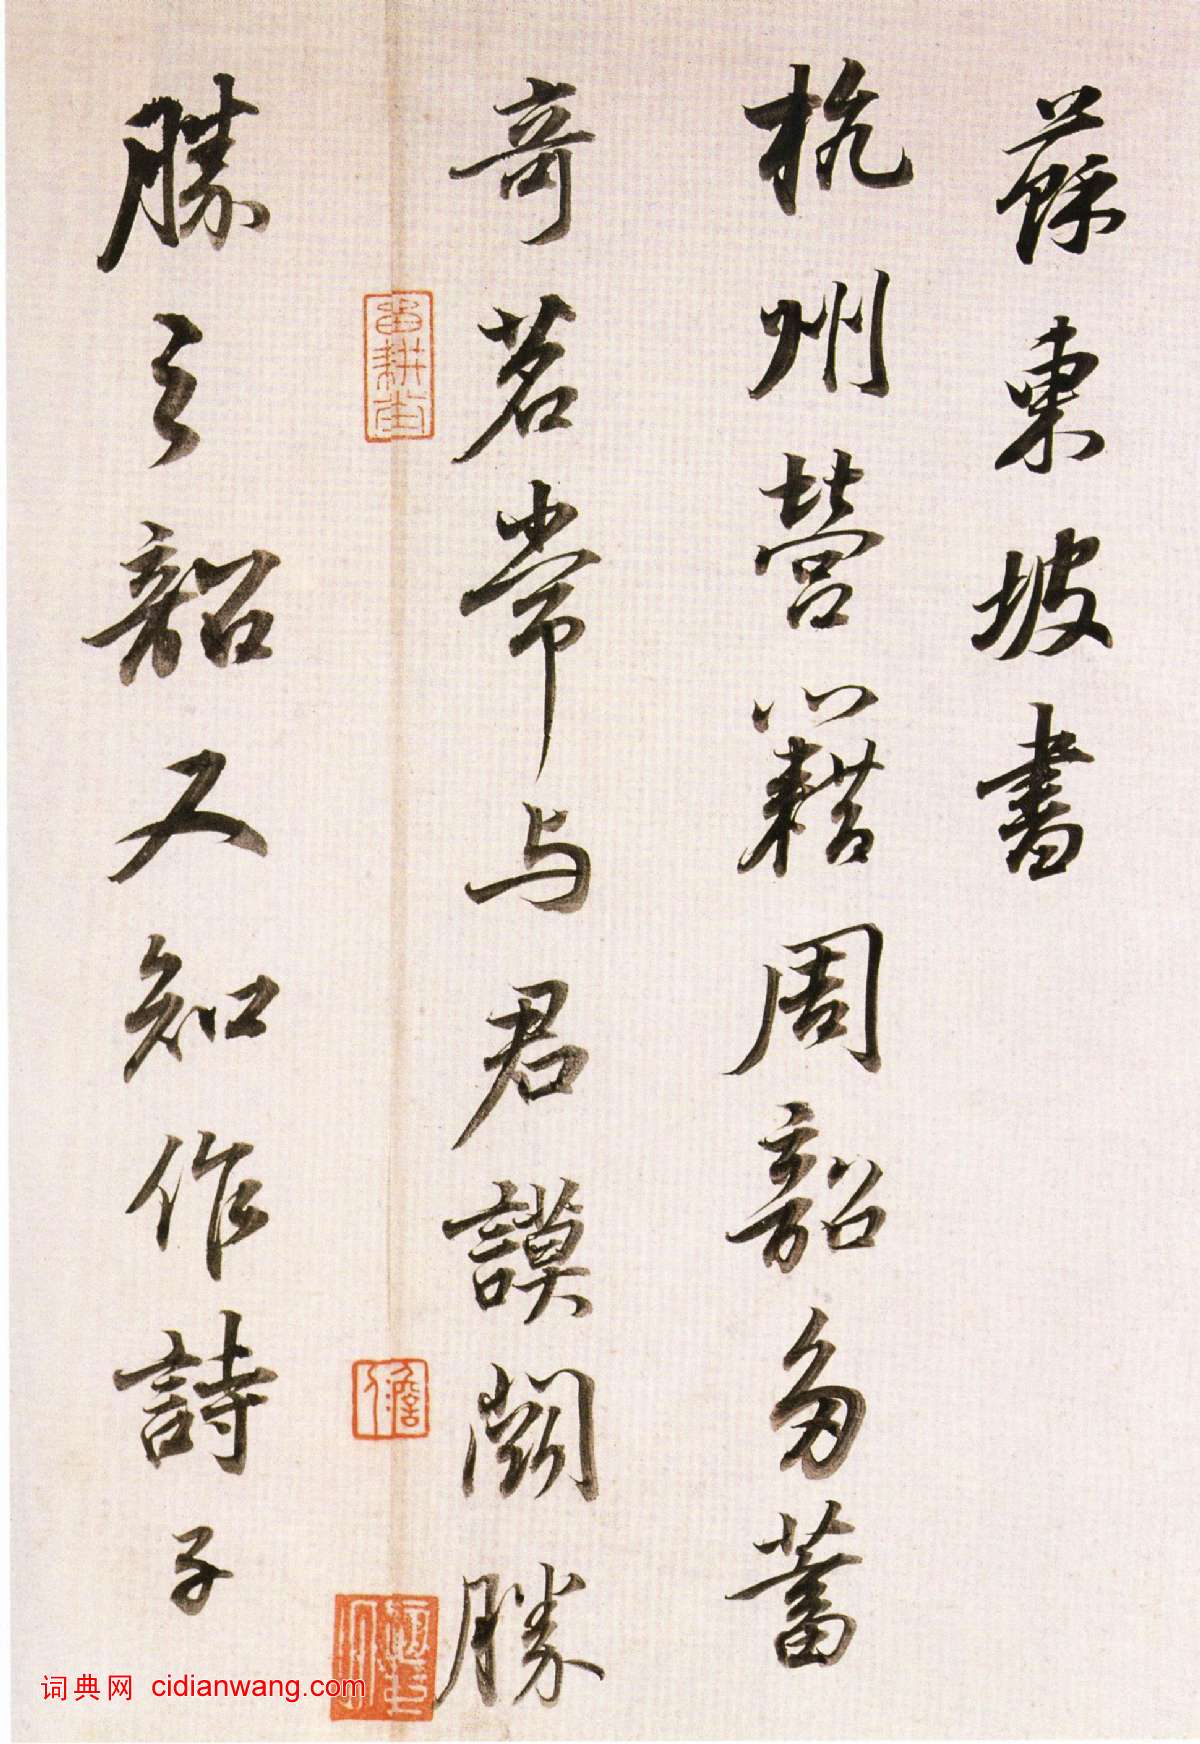 蘇東坡書
杭州營籍周韶多蓄
奇茗常与君謨鬬勝
勝之韶又知作詩子
留耕堂
詞典网 cidianwang.com